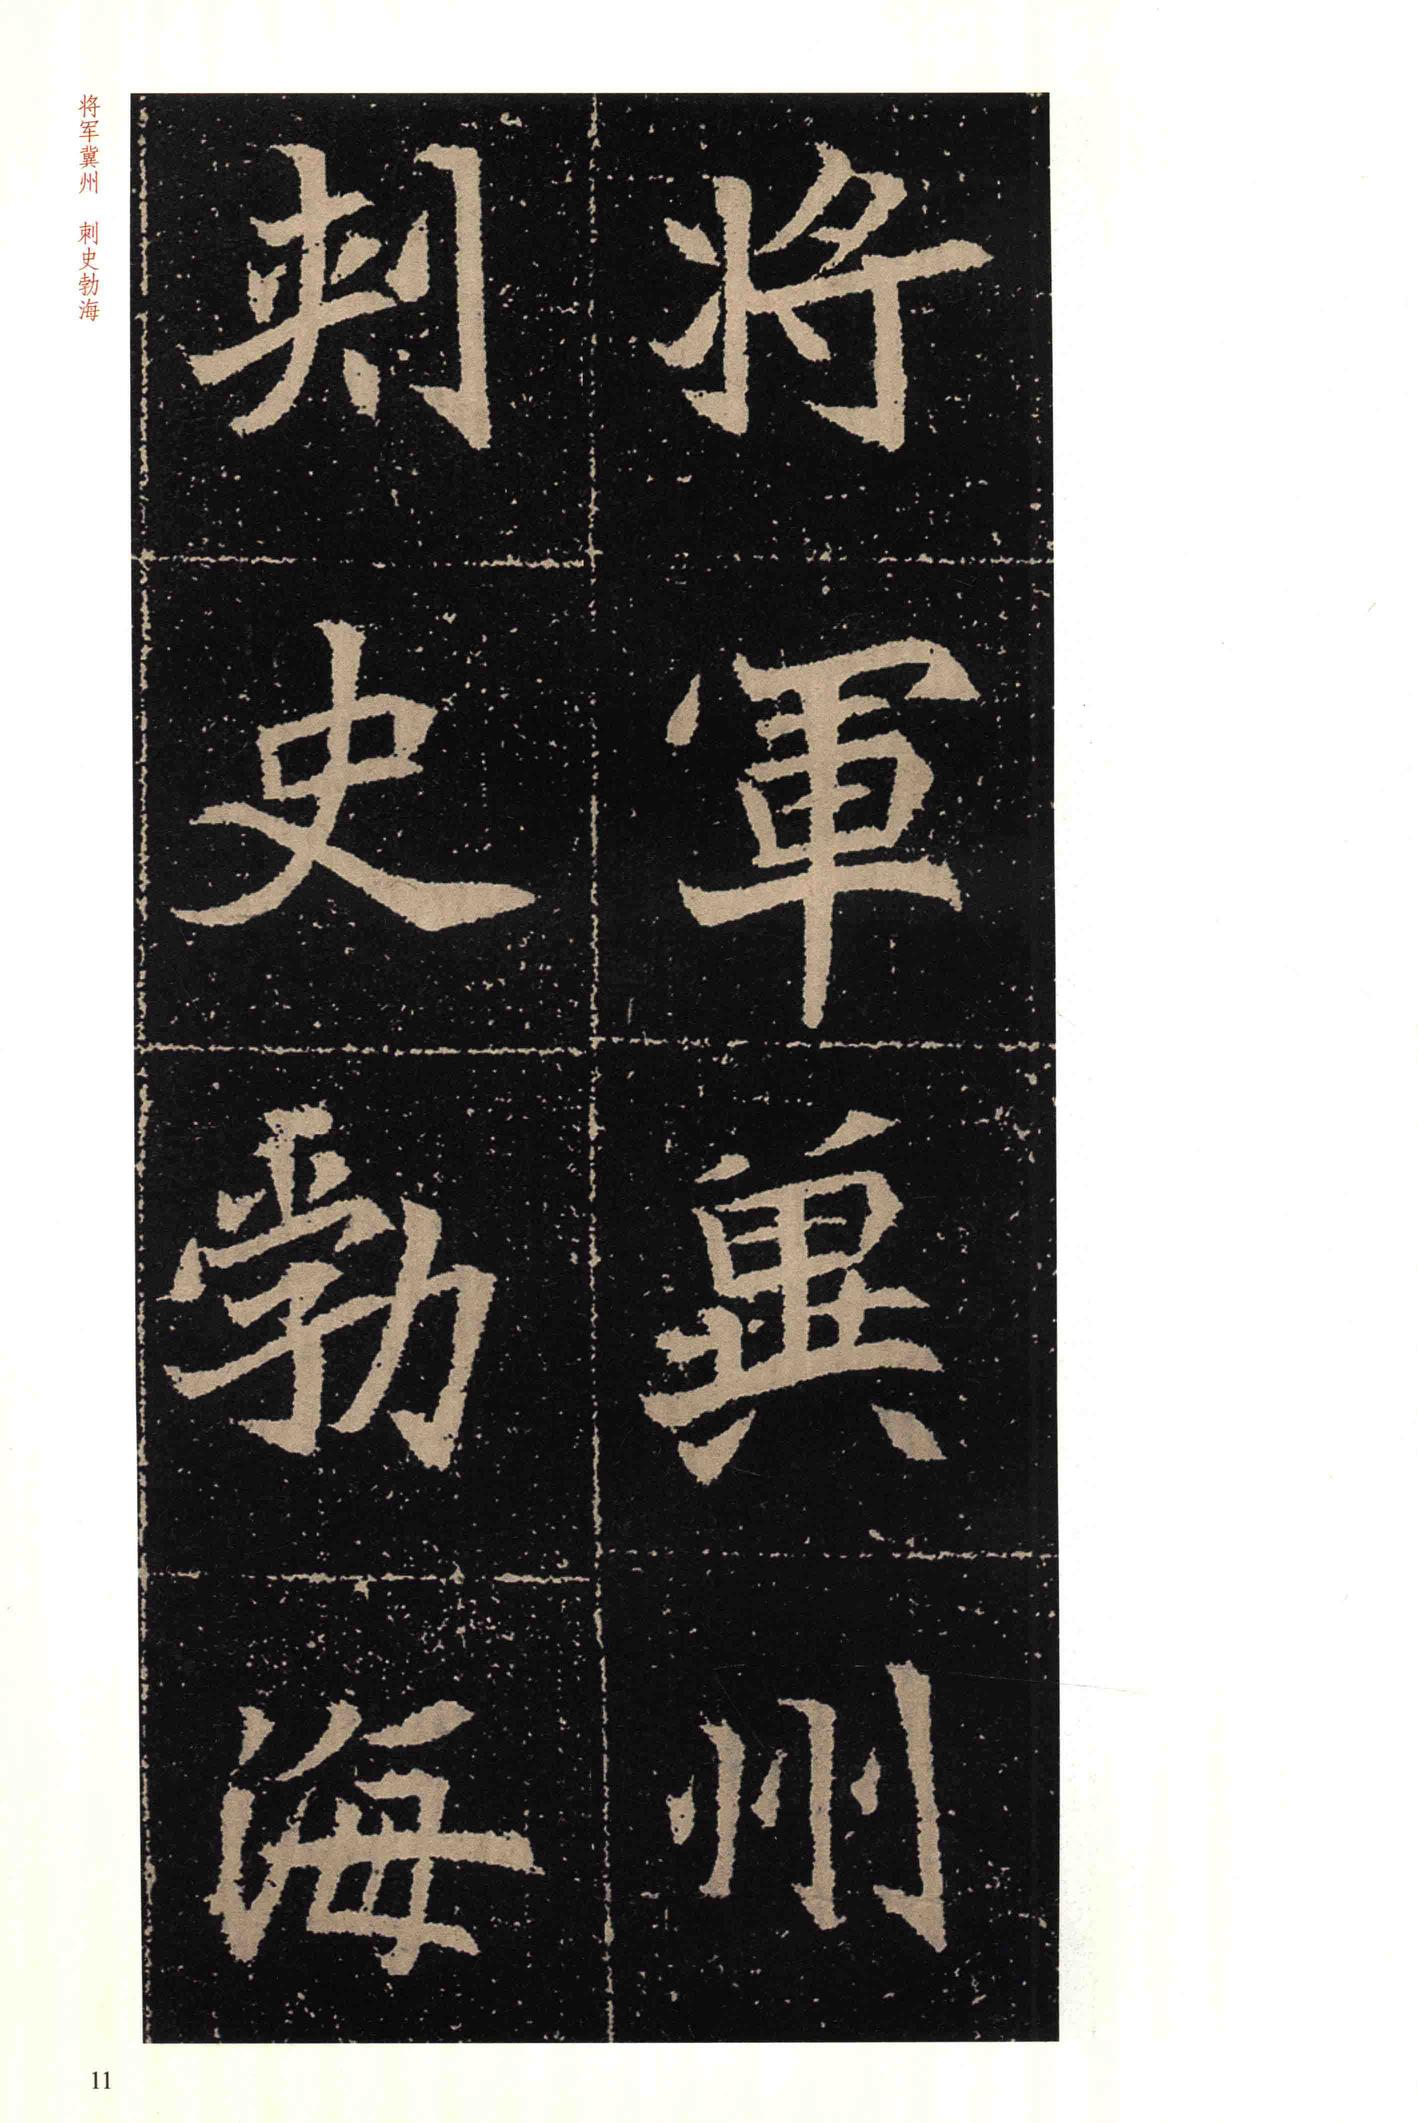 将軍冀州
刺史勃海
将军冀州 刺史勃海
11